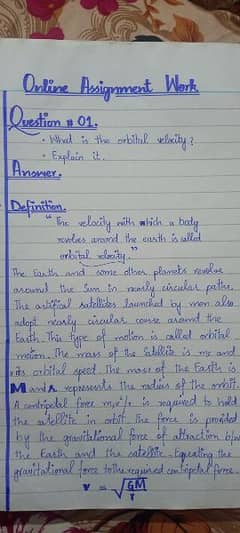 Online Assignment Work
Question # 01.
• What is the orbital velocity?
• Explain it.
Answer.
Definition.
"The velocity with which a body
revolves around the earth is called
orbital velocity."
The Earth and some other planets revolve
around the sun in nearly circular paths.
The artifical satellites launched by men also
adopt nearly circular course around the
Earth. This type of motion is called orbital
motion. The mass of the satellite is ms and
its orbital speed. The mass of the Earth is
M and r represents the radius of the orbit.
A centripetal force msv²/r is required to hold
the satellite in orbit. The force is provided
by the gravitational force of attraction b/w
the Earth and the satellite. Equating the
gravitational force to the required centripetal force.
v = √GM/r